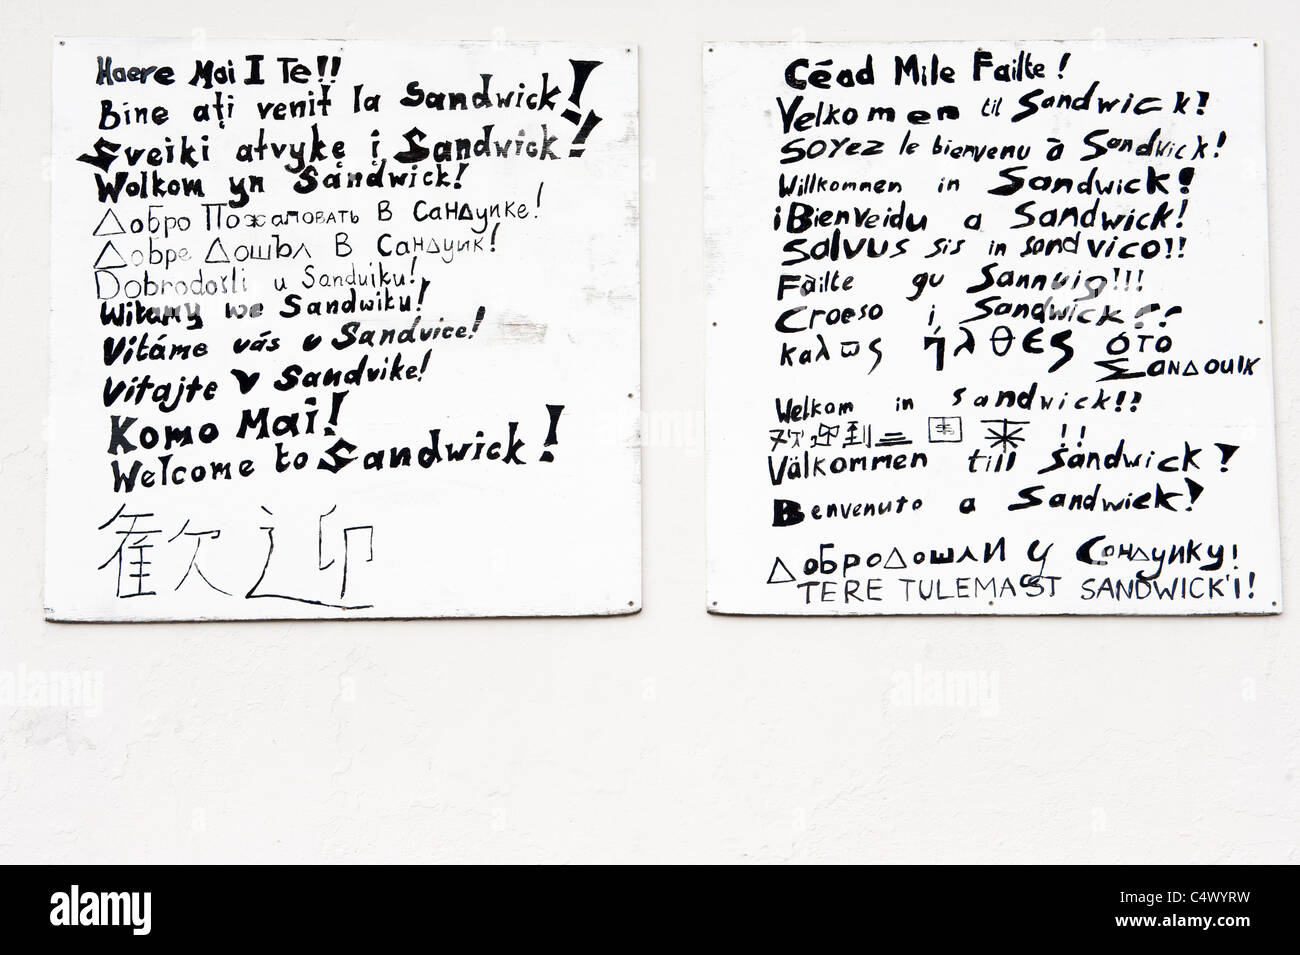 Haere Mai I Te!!
Bine aţi venit la Sandwick!
Sveiki atvykę į Sandwick!
Wolkom yn Sandwick!
Добро Пожаловать В Сандуике!
Добре Дошъл В Сандуик!
Dobrodošli u Sanduiku!
Witamy we Sandwiku!
Vítáme vás v Sandvice!
Vitajte V Sandvike!
Komo Mai!
Welcome to Sandwick!
歡迎
Céad Mile Failte!
Velkomen til Sandwick!
Soyez le bienvenu à Sandwick!
Willkommen in Sandwick!
¡Bienveidu a Sandwick!
Salvus sis in sandvico!!
Fàilte gu Sannuig!!!
Croeso i Sandwick!!
καλῶς ήλθες ότο
Σανδουικ
Welkom in Sandwick!!
欢迎到三 !!
Välkommen till Sandwick!
Benvenuto a Sandwick!
Добродошли у Сондуику!
TERE TULEMAST SANDWICK'I!
alamy
Image ID: C4WYRW
www.alamy.com